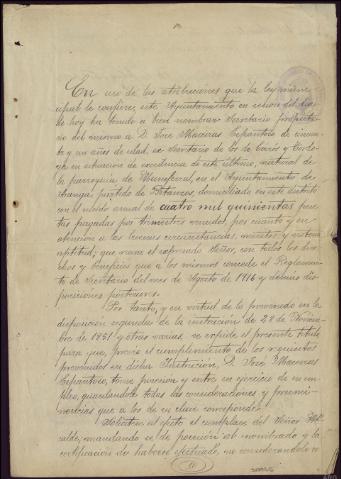 En uso de las atribuciones que la ley muni-
cipal le confiere, este Ayuntamiento en sesión del día
de hoy ha tenido a bien nombrar Secretario propieta-
rio del mismo a D. José Maceiras Espantoso de cincuen-
ta y un años de edad, ex-Secretario de los de Cabás y Cesu-
ra en situación de excedencia de este último, natural de
la parroquia de en el Ayuntamiento de
Aranga, partido de Betanzos, domiciliado en este distrito
con el sueldo anual de cuatro mil quinientas pese-
tas pagadas por trimestres vencidos por cuanto y en
atención a las buenas circunstancias, méritos y notoria
aptitud; que reune el expresado Señor, con todos los dere-
chos y beneficios que a los mismos concede el Reglamen-
to de Secretarios del mes de Agosto de 1916 y demás dis-
posiciones posteriores.
Por tanto, y en virtud de lo prevenido en la
disposición segunda de la instrucción de 28 de Noviem-
bre de 1851 y otras varias, se expide el presente título
para que, previo el cumplimiento de los requisitos
prevenidos en dicha Instrucción, D. José Maceiras
Espantoso, tome posesion y entre en ejercicio de su em-
pleo, guardandole todas las consideraciones y preemi-
nencias que a los de su clase corresponden.
el efecto el cumplase del Señor Al-
calde, mandando se dé posesión al nombrado y la
certificación de haberse efectuado, no considerándolo